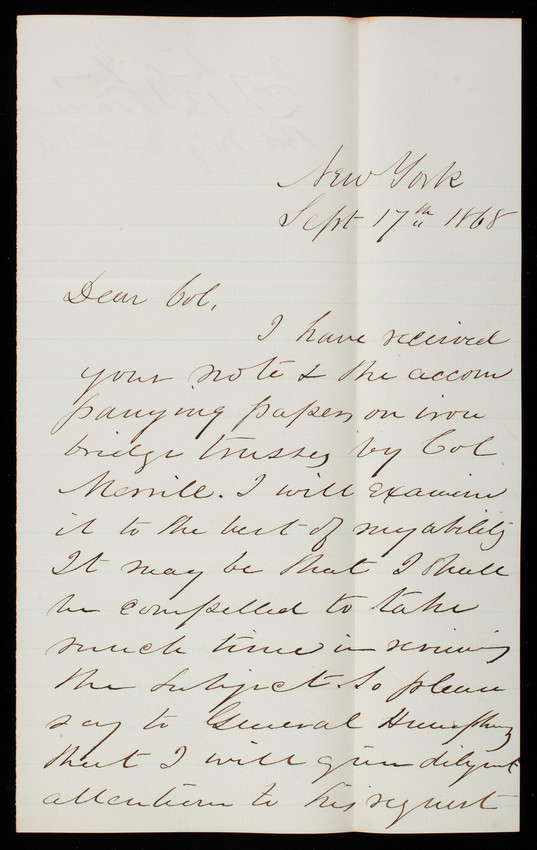 New York
Sept 17th 1868
Dear Col,
I have received
your note & the accom
panying paper on iron
bridge trusses by Col
Merrill. I will examine
it to the best of my ability
It may be that I shall
be compelled to take
much time in reviewing
the subject. So please
say to General Humphreys
that I will give diligent
attention to his request